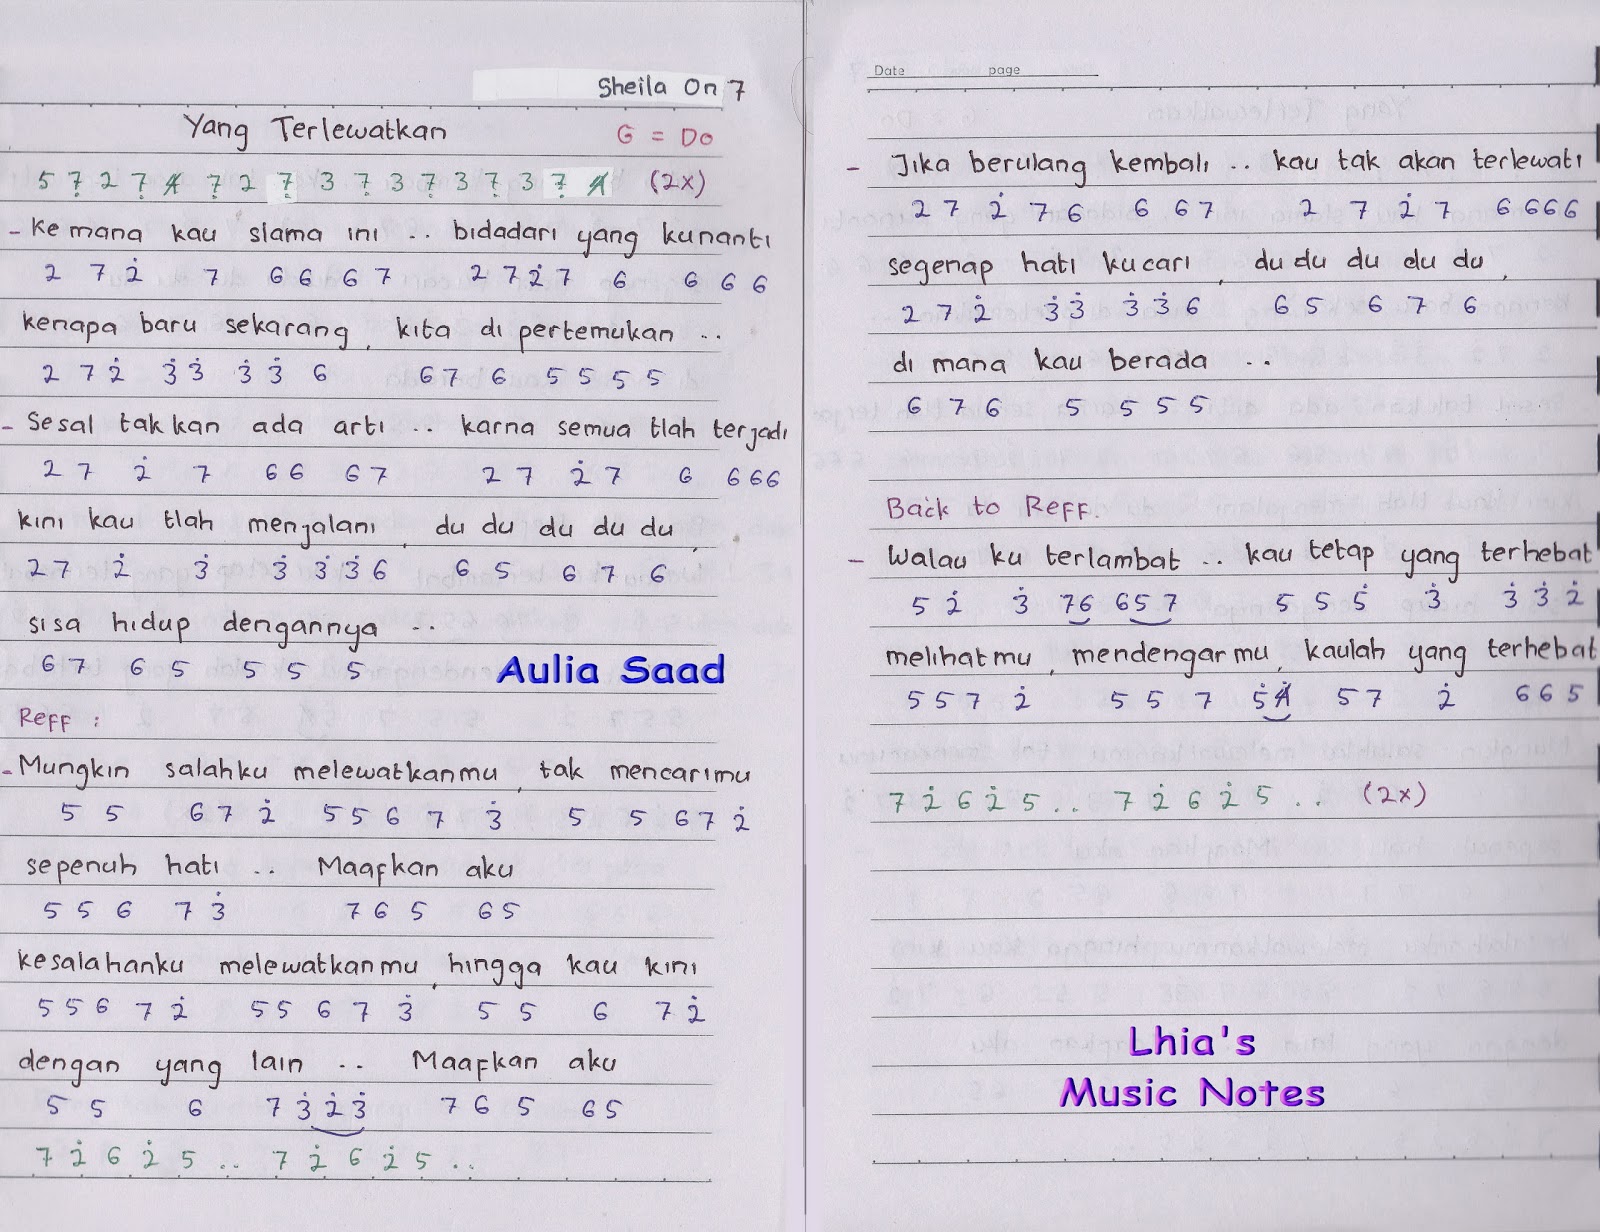 Sheila On 7
Yang Terlewatkan G = Do
5 7̣ 2 7̣ 4̸ 7̣ 2 7̣ 3 7̣ 3 7̣ 3 7̣ 3 7̣ 4̸ (2x)
- Ke mana kau slama ini .. bidadari yang kunanti
2 7 2̇ 7 6 6 6 7 2 7 2̇ 7 6 6 6 6
kenapa baru sekarang, kita di pertemukan ..
2 7 2̇ 3̇ 3̇ 3̇ 3̇ 6 6 7 6 5 5 5 5
- Sesal tak kan ada arti .. karna semua tlah terjadi
2 7 2̇ 7 6 6 6 7 2 7 2̇ 7 6 6 6 6
kini kau tlah menjalani, du du du du du,
2 7 2̇ 3̇ 3̇ 3̇ 3̇ 6 6 5 6 7 6
sisa hidup dengannya ..
6 7 6 5 5 5 5
Aulia Saad
Reff :
- Mungkin salahku melewatkanmu, tak mencarimu
5 5 6 7 2̇ 5 5 6 7 3̇ 5 5 6 7 2̇
sepenuh hati .. Maafkan aku
5 5 6 7 3̇ 7 6 5 6 5
kesalahanku melewatkanmu, hingga kau kini
5 5 6 7 2̇ 5 5 6 7 3̇ 5 5 6 7 2̇
dengan yang lain .. Maafkan aku
5 5 6 7 3̇ 2̇ 3̇ 7 6 5 6 5
7 2̇ 6 2̇ 5 .. 7 2̇ 6 2̇ 5 ..
Date page
- Jika berulang kembali .. kau tak akan terlewati
2 7 2̇ 7 6 6 6 7 2 7 2̇ 7 6 6 6 6
segenap hati kucari, du du du du du,
2 7 2̇ 3̇ 3̇ 3̇ 3̇ 6 6 5 6 7 6
di mana kau berada ..
6 7 6 5 5 5 5
Back to Reff.
- Walau ku terlambat .. kau tetap yang terhebat
5 2̇ 3̇ 76 657 5 5 5̇ 3̇ 3̇ 3̇ 2̇
melihatmu, mendengarmu, kaulah yang terhebat
5 5 7 2̇ 5 5 7 5̇ 4̸̇ 5 7 2̇ 6 6 5
7 2̇ 6 2̇ 5 .. 7 2̇ 6 2̇ 5 .. (2x)
Lhia's
Music Notes